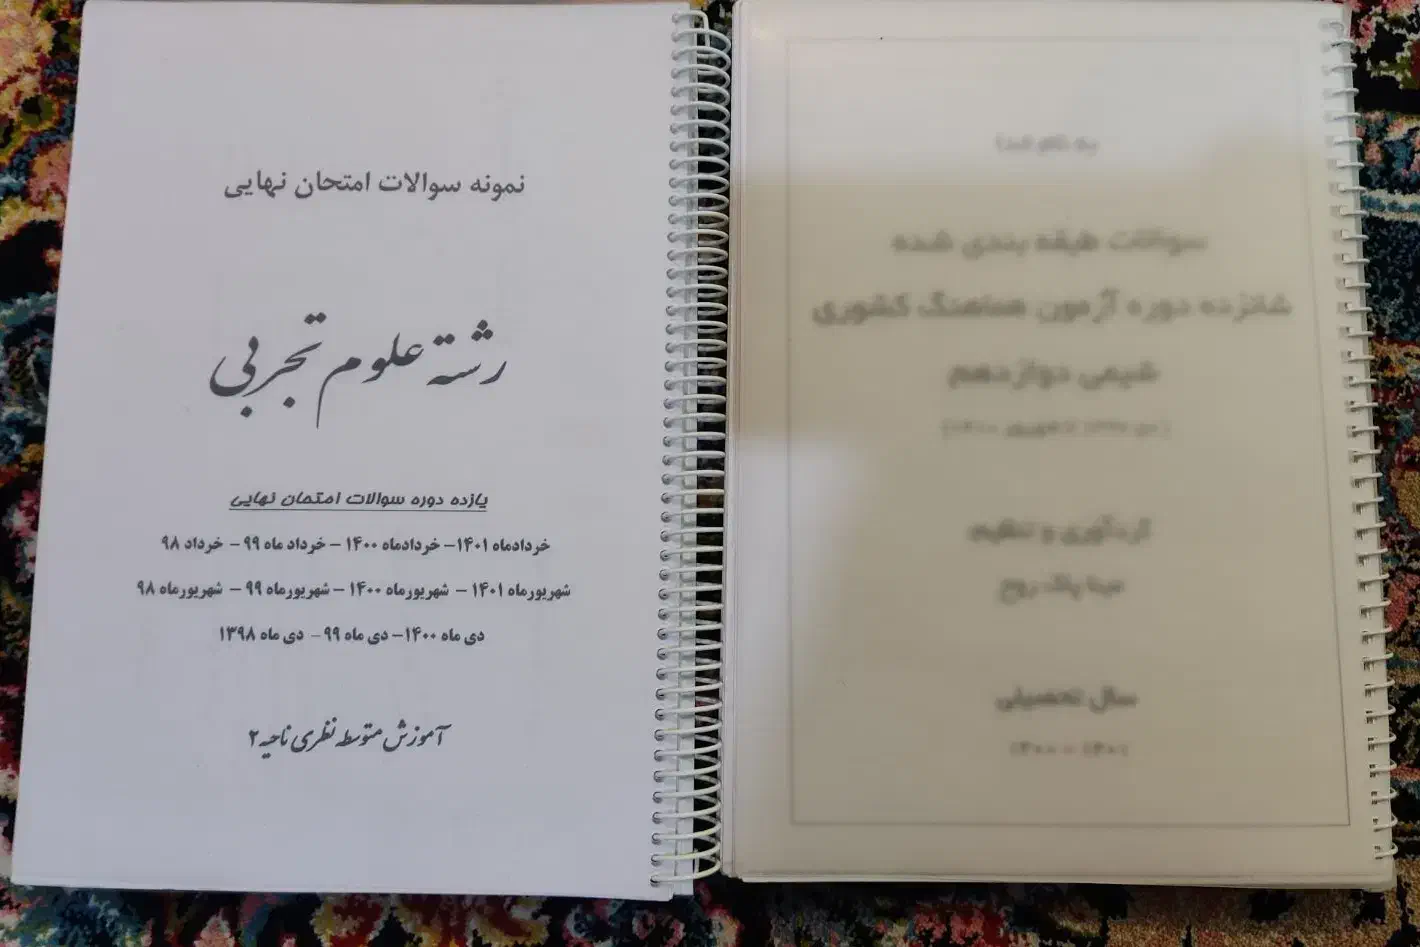 نمونه سوالات امتحان نهایی
رشته علوم تجربی
یازده دوره سوالات امتحان نهایی
خردادماه ۱۴۰۱- خردادماه ۱۴۰۰ - خرداد ماه ۹۹ - خرداد ۹۸
شهریورماه ۱۴۰۱ - شهریورماه ۱۴۰۰ - شهریورماه ۹۹ - شهریورماه ۹۸
دی ماه ۱۴۰۰- دی ماه ۹۹ - دی ماه ۱۳۹۸
آموزش متوسطه نظری ناحیه ۲
به نام خدا
سوالات طبقه بندی شده
شانزده دوره آزمون هماهنگ کشوری
شیمی دوازدهم
گردآوری و تنظیم
سال تحصیلی